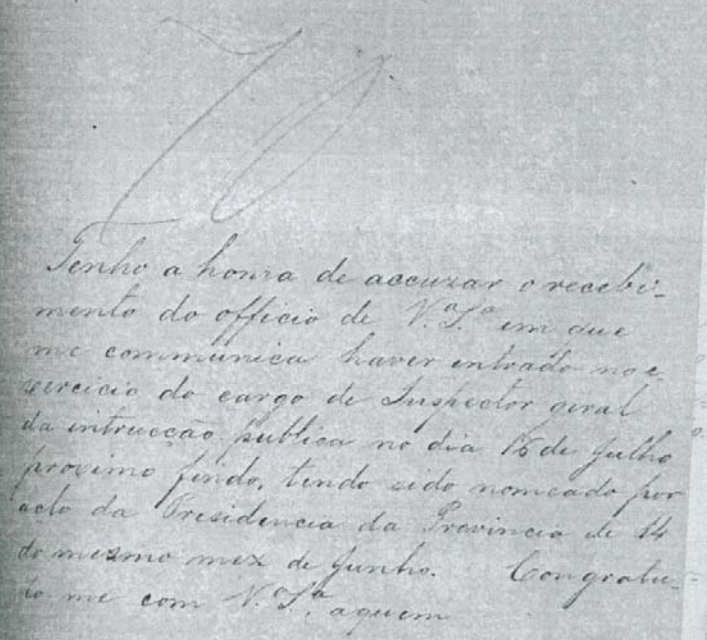 70
Tenho a honra de accuzar o recebi-
mento do officio de V.ª S.ª em que
me communica haver entrado no e-
xercicio do cargo de Inspector geral
da intrucção publica no dia 15 de Julho
proximo findo, tendo sido nomeado por
acto da Presidencia da Provincia de 14
do mesmo mez de Junho. Congratu-
lo me com V.ª S.ª, a quem